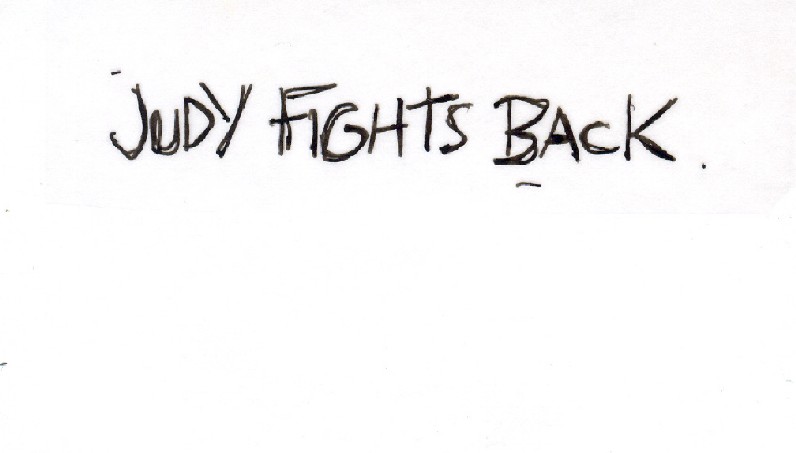 JUDY FIGHTS BACK.